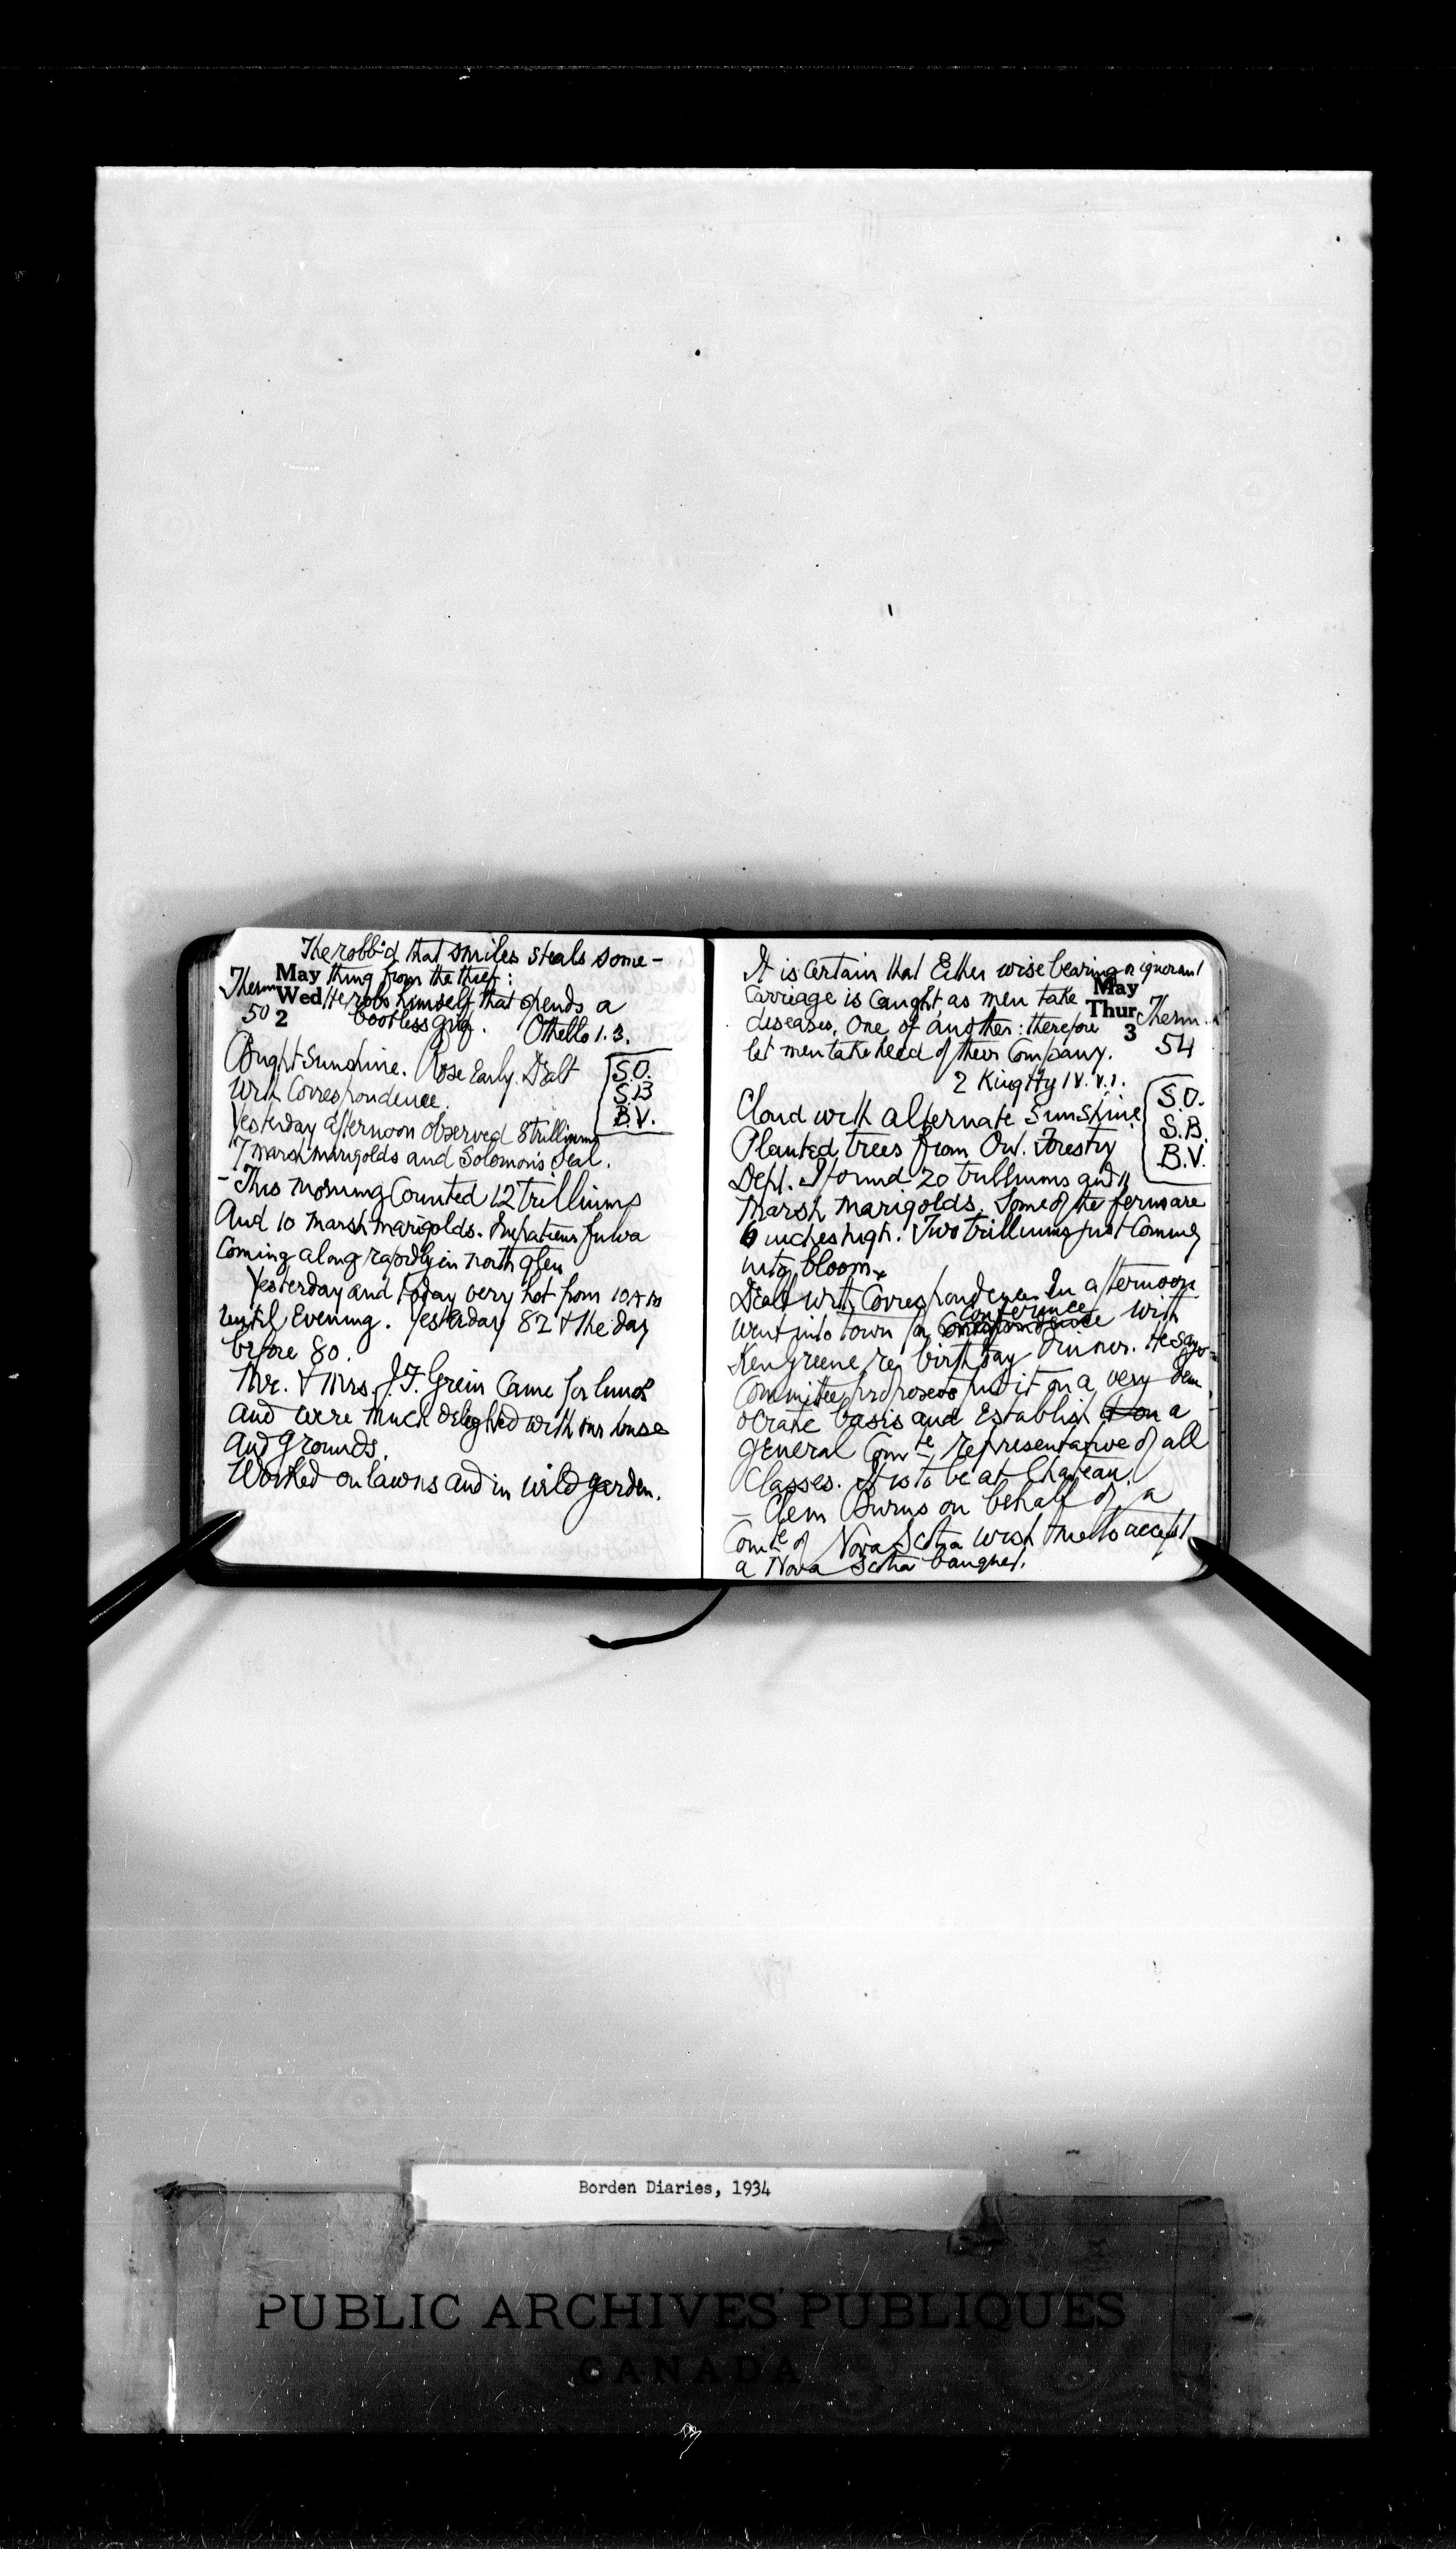 The robb'd that smiles steals some-
May thing from the thief:
Therm Wed He robs himself that spends a
50 2 bootless grief. Othello 1.3.
Bright Sunshine. Rose Early. Dealt
S.O.
With Correspondence.
S.B
B.V.
Yesterday afternoon observed 8 trilliums
7 marsh marigolds and Solomon's Seal.
- This morning Counted 12 trilliums
And 10 marsh marigolds. Impatiens fulva
Coming along rapidly in north glen
Yesterday and today very hot from 10 A M
until Evening. Yesterday 82 & the day
before 80.
Mr. & Mrs. J.T. Grein Came for lunch
and were much delighted with our house
and grounds.
Worked on lawns and in wild garden.
It is Certain that Either wise bearing or ignorant
Carriage is Caught, as men take May
diseases, One of another: therefore Thur Therm.
let men take heed of their Company. 3 54
2 King Hy IV. V.1.
Cloud with alternate Sunshine
S.O.
S.B.
B.V.
Planted trees from Ont. Forestry
Dept. Found 20 trilliums and 11
Marsh Marigolds. Some of the ferns are
6 inches high. Two trilliums just Coming
into bloom.
Dealt with Correspondence. In afternoon
Went into town for Conference with
Ken Greene re birthday Dinner. He says
Committee proposes put it on a very dem
ocratic basis and Establish a
General Comte representative of all
Classes. It is to be at Chateau.
- Clem Burns on behalf of a
Comte of Nova Scotia wish me to accept
a Nova Scotia banquet.
Borden Diaries, 1934
PUBLIC ARCHIVES PUBLIQUES
CANADA